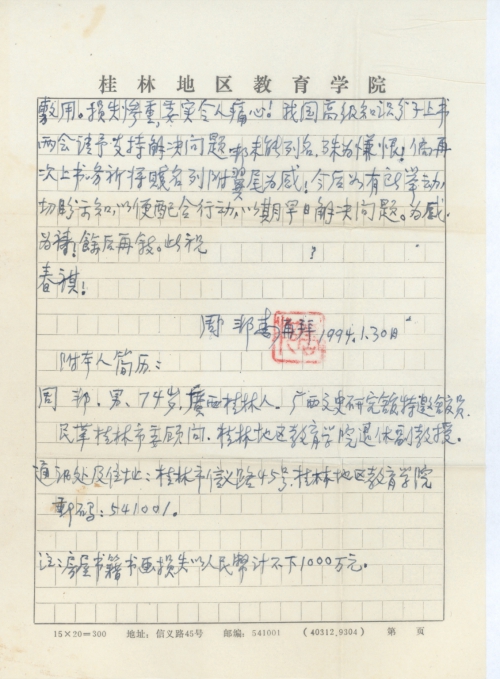 桂林地区教育学院
敷用。损失惨重,委实令人痛心!我国高级知识分子上书
两会请予支持解决问题,邦未能列名,殊为慊恨!倘再
次上书,务祈将贱名列附翼尾为感!今后如有此举动,
切盼示知,以便配合行动,以期早日解决问题。为感
为祷!馀后再叙。此祝
春祺!
周邦 再拜 1994.1.30日
附本人简历:
周邦,男、74岁,廣西桂林人。广西文史研究馆特邀会员,
民革桂林市委顾问,桂林地区教育学院退休副教授。
通讯处及住址:桂林市信义路45号,桂林地区教育学院
邮码:541001。
注:房屋书籍书画损失以人民幣计不下1000万元。
15×20=300 地址:信义路45号 邮编:541001 (40312.9304) 第 页